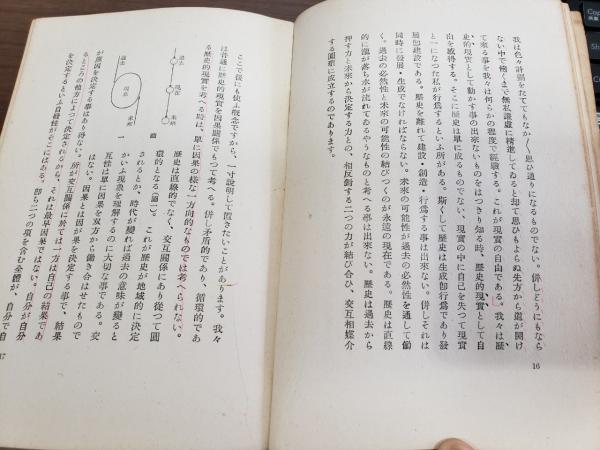 我は色々計劃をたててもなか〱思ひ通りになるものでない。併しどうにもなら
ない中で飽くまで無私謙虚に精進してゐると却て思ひもよらぬ先方から道が開け
て來る事を我々は何らかの程度で經驗する。これが現實の自由である。我々は歷
史的現實として動かす事の出來ないものをはつきり知る時、歷史的現實として自
由を獲得する。そこに歷史は單に成るものでない、現實の中に自己を失つて現實
と一になつた私が行爲するといふ所がある。斯くして歷史は生成卽行爲であり發
展卽建設である。歷史を離れて建設・創造・行爲する事は出來ない。併しそれは
同時に發展・生成でなければならない。未來の可能性が過去の必然性を通して働
く。過去の必然性と未來の可能性の結びつくのが永遠の現在である。歷史は直線
的に瀧が落ち水が流れてゐるやうなものと考へる事は出來ない。歷史は過去から
押す力と未來から決定する力との、相反對する二つの力が結び合ひ、交互相媒介
する圓環に成立するのであります。
16
ここで後にも使ふ概念ですから、一寸說明して置きたいことがあります。我々
は普通に歷史的現實を因果關係でもつて考へる。併し矛盾的であり、循環的であ
る歷史的現實を考へる時は、單に因果の樣な一方向的なものでは考へられない。
過去
現在
未來
過去
現在
未來
圖
一
歷史は直線的でなく、交互關係にあり從つて圓
環的となる(圖一)。これが歷史が地域的に決定
されるとか、時代が變れば過去の意味が變ると
かいふ現象を理解するのに大切な事である。交
互性は單に因果を双方から働き合はせたもので
はない。因果とは因が果を決定する事で、結果
が原因を決定する事はあり得ない。所が交互關係に於ては一方は自己の結果であ
るところの他方によつて決定されるから、それは最早因果ではない。自分が自分
を決定するといふ自發性がそこにはある。卽ち二つの項を含む全體が、自分で自
17